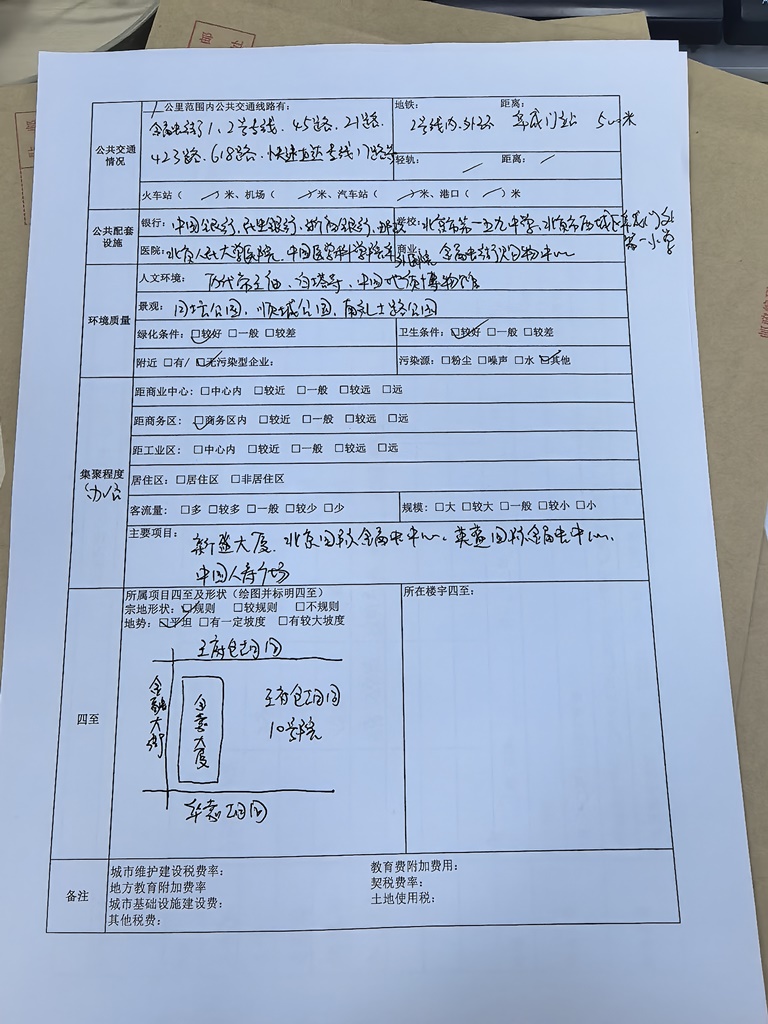 1公里范围内公共交通线路有:
金融街1、2号专线、45路、21路、
423路、618路、快速直达专线17路等
公共交通
情况
地铁: 距离:
2号线内、外环 阜成门站 500米
轻轨: 距离:
火车站( )米、机场( )米、汽车站( )米、港口( )米
公共配套
设施
银行:中国银行、民生银行、浙商银行、邮政
学校:北京市第一五九中学、北京市西城区阜成门外
第一小学
医院:北京人大医院、中国医学科学院阜外医院
商业:金融街购物中心
环境质量
人文环境: 历代帝王庙、白塔寺、中国地质博物馆
景观: 月坛公园、顺城公园、南礼士路公园
绿化条件:☑较好 □一般 □较差
卫生条件:☑较好 □一般 □较差
附近 □有/☑无污染型企业:
污染源:□粉尘 □噪声 □水 ☑其他
集聚程度
(办公)
距商业中心:□中心内 □较近 □一般 □较远 □远
距商务区:☑商务区内 □较近 □一般 □较远 □远
距工业区:□中心内 □较近 □一般 □较远 □远
居住区:□居住区 □非居住区
客流量:□多 □较多 □一般 □较少 □少
规模:□大 □较大 □一般 □较小 □小
主要项目:
新盛大厦、北京国际金融中心、英蓝国际金融中心、
中国人寿广场
四至
所属项目四至及形状(绘图并标明四至)
宗地形状:☑规则 □较规则 □不规则
地势:☑平坦 □有一定坡度 □有较大坡度
所在楼宇四至:
王府仓胡同
金融大街
大厦
王府仓胡同
10号院
华嘉胡同
备注
城市维护建设税费率:
地方教育附加费率
城市基础设施建设费:
其他税费:
教育费附加费用:
契税费率:
土地使用税: